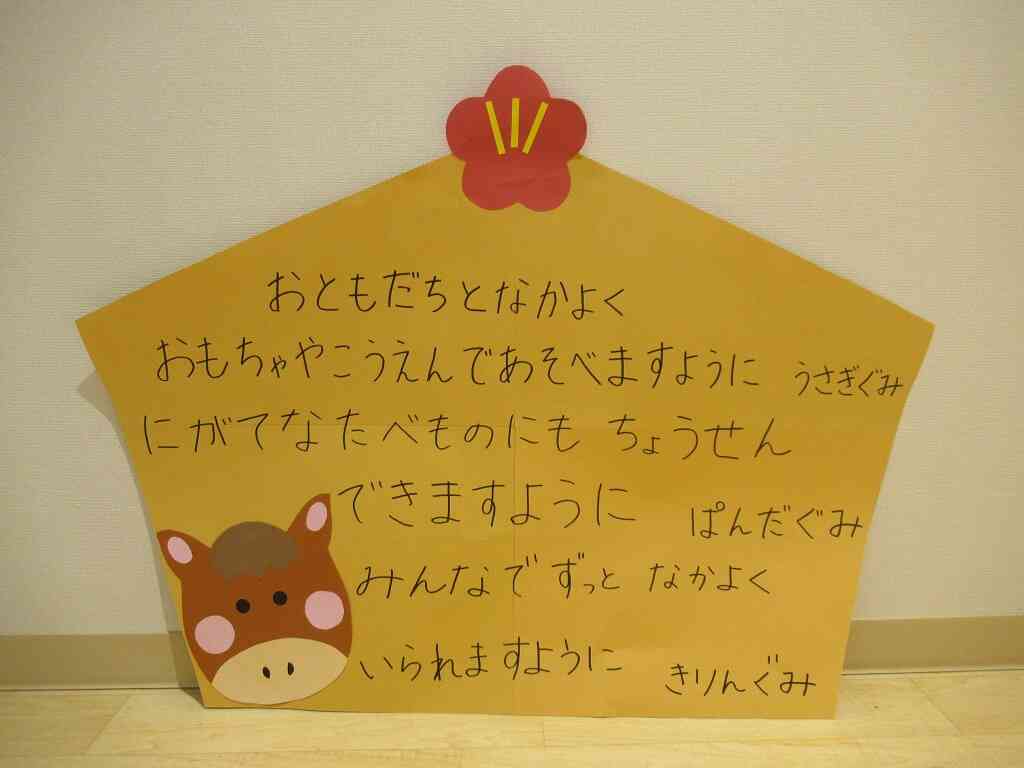 おともだちとなかよく
おもちゃやこうえんであそべますように うさぎぐみ
にがてなたべものにも ちょうせん
できますように ぱんだぐみ
みんなで ずっと なかよく
いられますように きりんぐみ